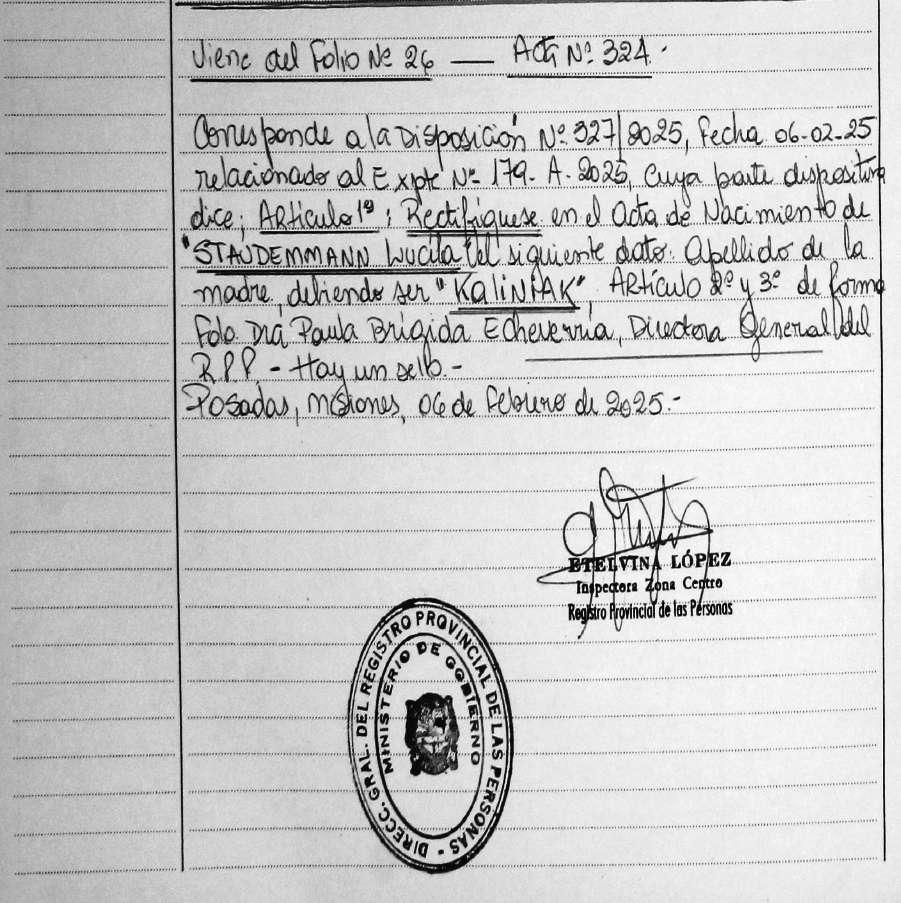 Viene del Folio Nº 26 — Acta Nº 324.-
Corresponde a la Disposición Nº 327/2025, Fecha 06-02-25
relacionado al Expte Nº 179-A-2025, cuya parte dispositiva
dice; Artículo 1º: Rectifíquese en el Acta de Nacimiento de
"STAUDEMMANN Lucila" el siguiente dato: Apellido de la
madre, debiendo ser "KaliNIAK", Artículo 2º y 3º de forma
Fdo Drá Paula Brigida Echeverría, Directora General del
RPP - Hay un sello.-
Posadas, Misiones, 06 de Febrero de 2025.-
ETELVINA LÓPEZ
Inspectora Zona Centro
Registro Provincial de las Personas
DIRECC. GRAL. DEL REGISTRO PROVINCIAL DE LAS PERSONAS -
MINISTERIO DE GOBIERNO